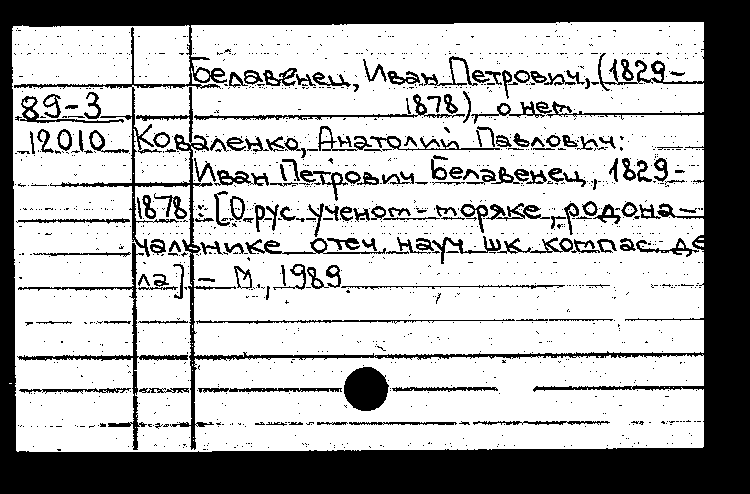 Белавенец, Иван Петрович, (1829-
89-3 1878), о нем.
12010 Коваленко, Анатолий Павлович:
Иван Петрович Белавенец, 1829-
1878 : [О рус. ученом-моряке, родона-
чальнике отеч. науч. шк. компас. де
ла] - М., 1989.